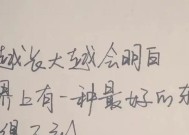 越长大越会明白
界上有一种最好的东
得不到